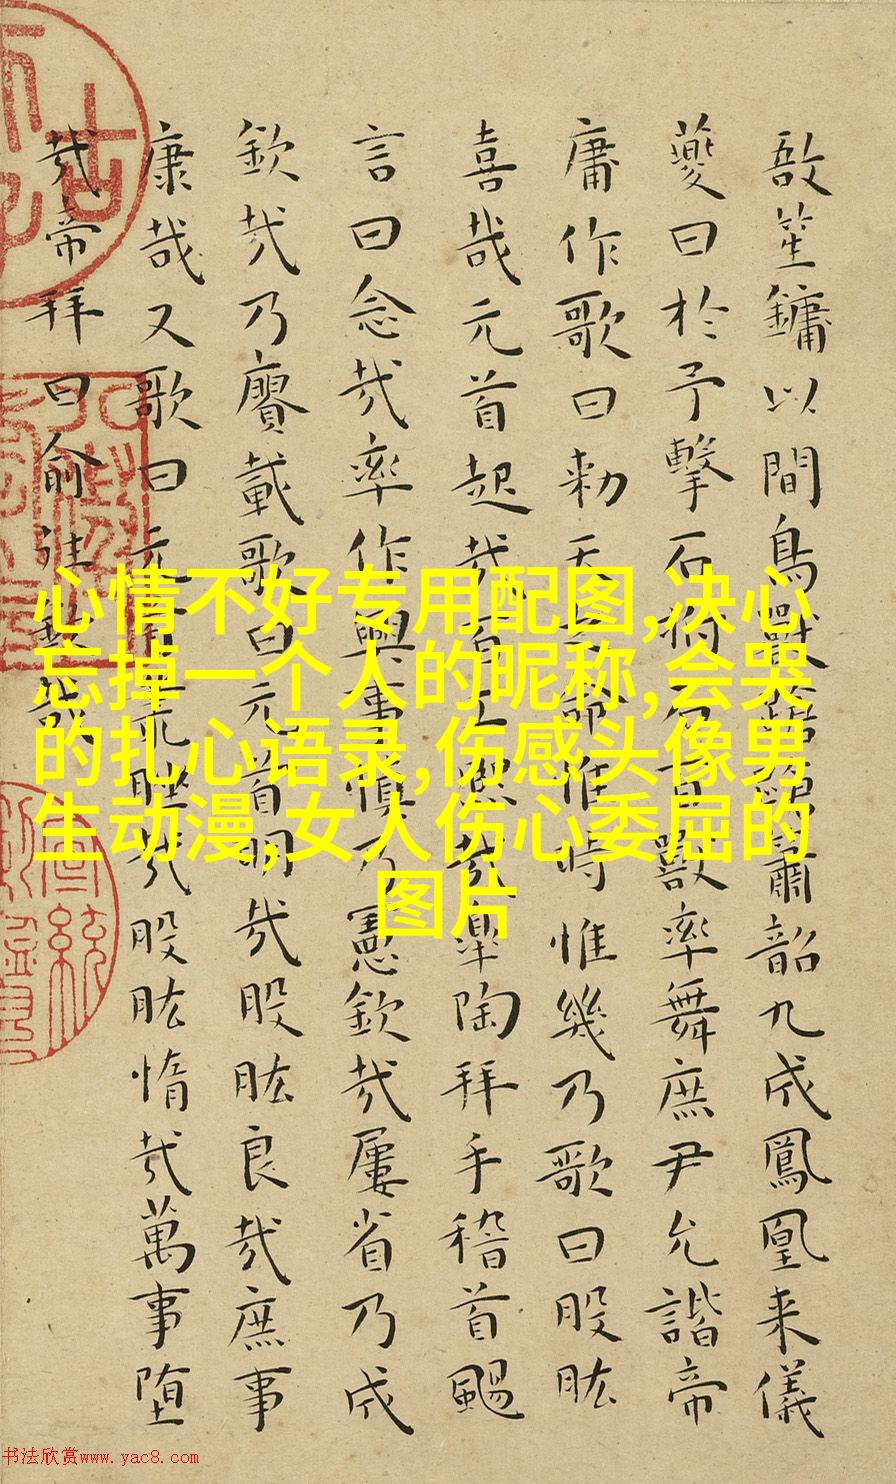 敔笙鏞以間鳥獸蹌蹌簫韶九成鳳凰来儀
夔曰於予擊石拊石百獸率舞庶尹允諧帝
庸作歌曰勑天之命惟時惟幾乃歌曰股肱
喜哉元首起哉百工熙哉皋陶拜手稽首颺
言曰念哉率作興事慎乃憲欽哉屢省乃成
欽哉乃賡載歌曰元首明哉股肱良哉庶事
康哉又歌曰元首叢脞哉股肱惰哉萬事堕
哉帝拜曰俞往欽哉
心情不好专用配图,决心
忘掉一个人的昵称,会哭
的扎心语录,伤感头像男
生动漫,女人伤心委屈的
图片
书法欣赏www.yac8.com